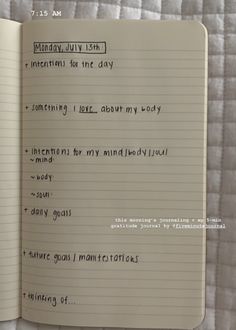 7:15 AM
Monday, July 13th:
+ intentions for the day
+ something I love about my body
+ intentions for my mind/body/soul
~mind:
~body:
~soul:
+ daily goals
this morning's journaling + my 5-min
gratitude journal by @fiveminutejournal
+ future goals/manifestations
+ thinking of...